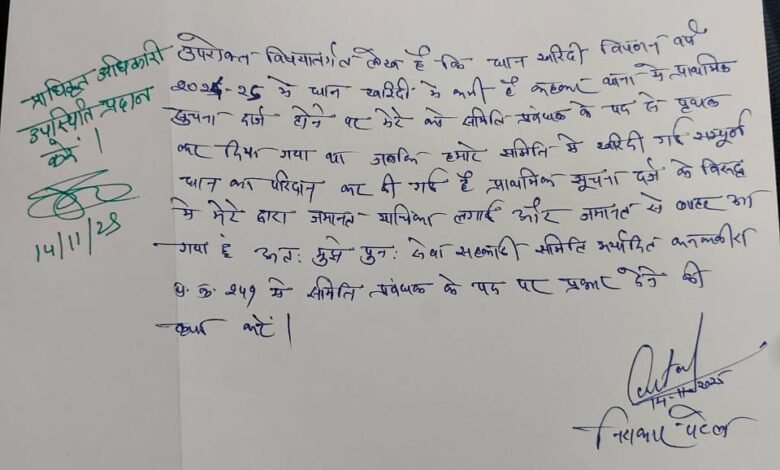 प्राधिकृत अधिकारी
उपस्थिति प्रदान
करें।
14/11/25
उपरोक्त विषयांतर्गत लेख है कि धान खरीदी विपणन वर्ष
2024-25 में धान खरीदी में कमी है कहकर थाना में प्राथमिक
सूचना दर्ज होने पर मेरे को समिति प्रबंधक के पद से पृथक
कर दिया गया था जबकि हमारे समिति में खरीदी गई सम्पूर्ण
धान का परिदान कर दी गई है प्राथमिक सूचना दर्ज के विरुद्ध
में मेरे द्वारा जमानत याचिका लगाई और जमानत से बाहर आ
गया हूं अतः मुझे पुनः सेवा सहकारी समिति मर्यादित
पं. क्र. २५९ में समिति प्रबंधक के पद पर प्रभार देने की
कृपा करें।
14.11.2025
पटेल